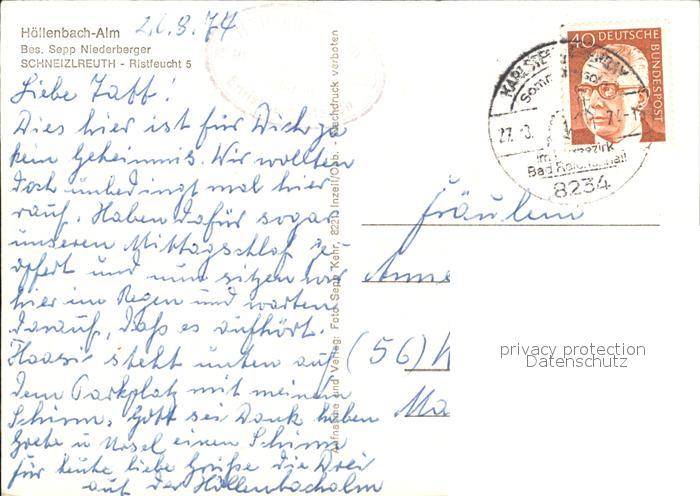 Höllenbach-Alm
Bes. Sepp Niederberger
SCHNEIZLREUTH - Ristfeucht 5
Liebe Taff!
Dies hier ist für Dich ja
kein Geheimnis. Wir wollten
doch unbedingt mal hier
rauf. Haben dafür sogar
unseren Mittagsschlaf ge-
opfert und nun sitzen wir
hier im Regen und warten
darauf, daß es aufhört.
steht unten auf
dem Parkplatz mit meinem
Schirm. Gott sei Dank haben
Grete u einen Schirm
für heute liebe Grüße die Drei
auf der Höllenbachalm
Aufnahme und Verlag: Foto Sepp Kehr, 8221 Inzell/Obb. Nachdruck verboten
40 DEUTSCHE
BUNDESPOST
Bad Reichenhall
8234
Fräulein
Anne
(56) W
Ma
privacy protection
Datenschutz